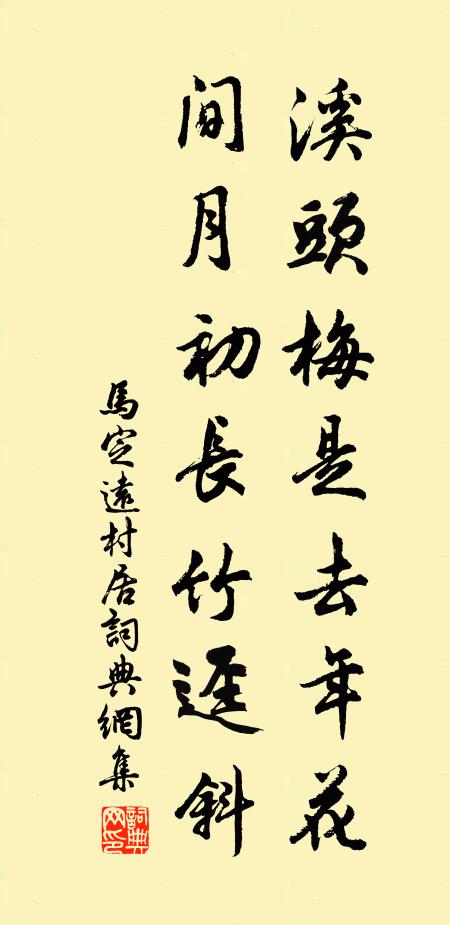 溪頭梅是去年花
間月初長竹逕斜
馬定遠村居詞典網集
詞典網印